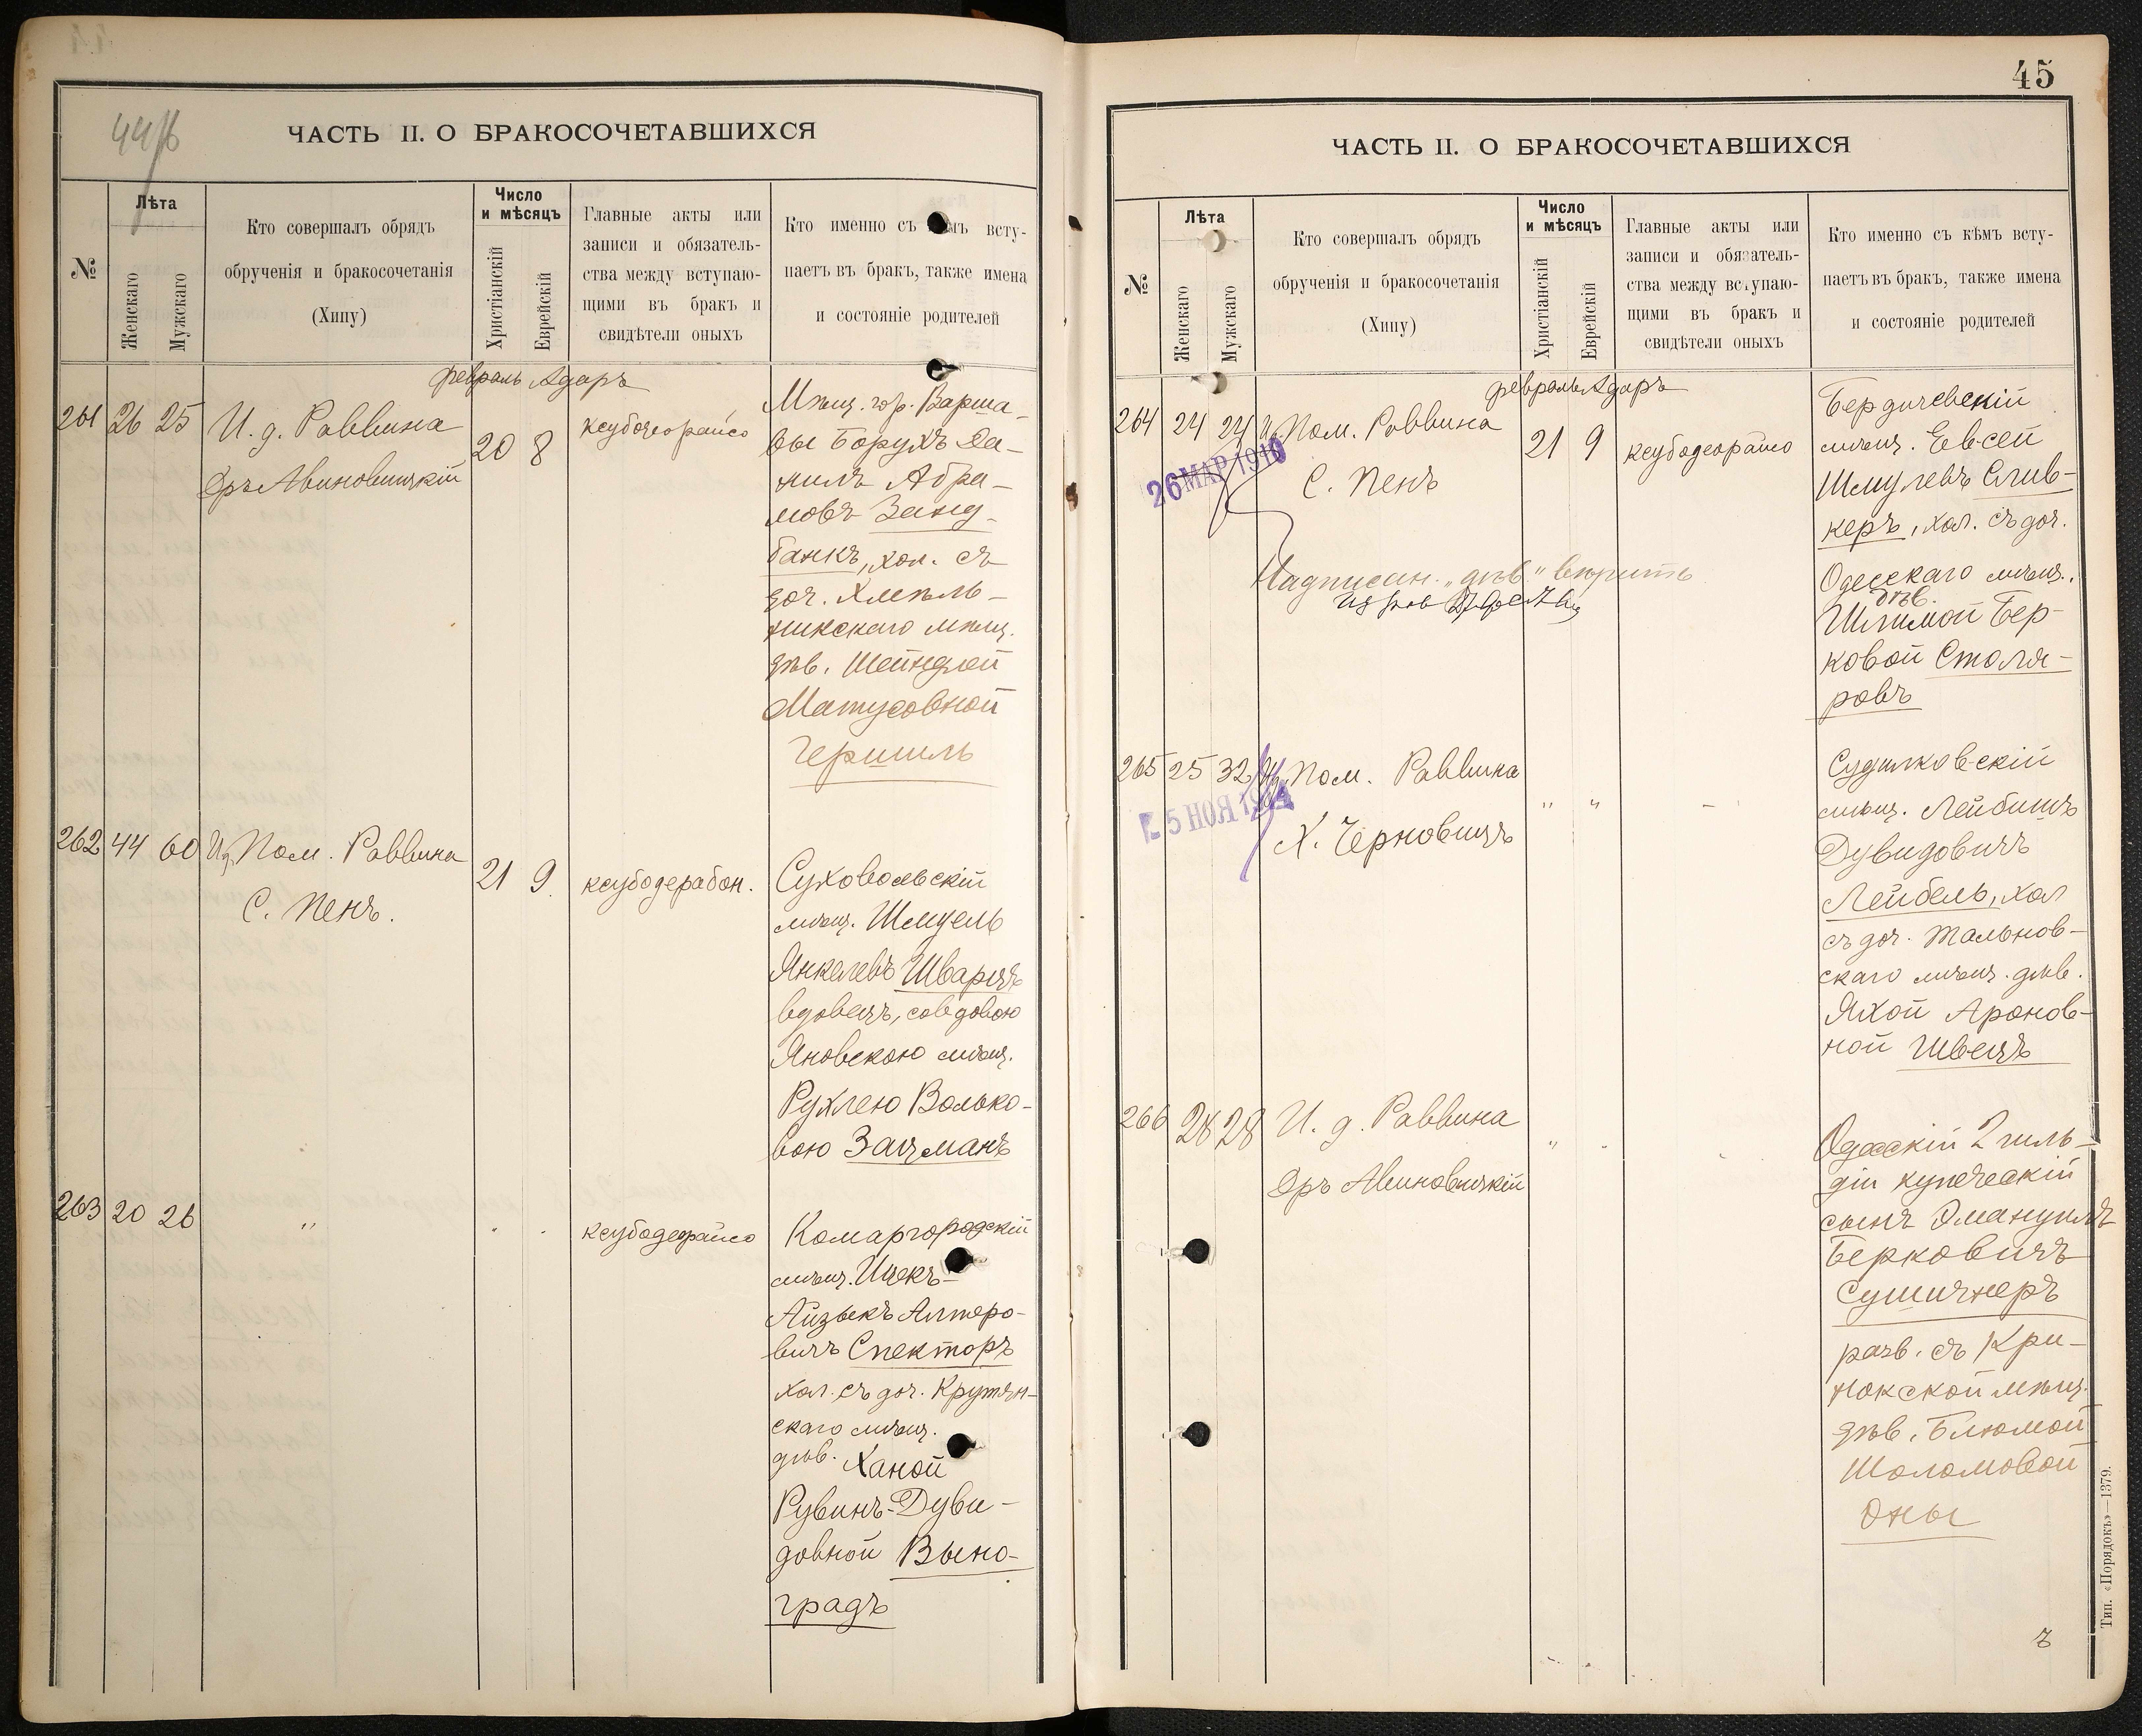 44
ЧАСТЬ II. О БРАКОСОЧЕТАВШИХСЯ
№
Лѣта
Женскаго
Мужскаго
Кто совершалъ обрядъ
обрученія и бракосочетанія
(Хипу)
Число
и мѣсяцъ
Христіанскій
Еврейскій
Главные акты или
записи и обязатель-
ства между вступаю-
щими въ бракъ и
свидѣтели оныхъ
Кто именно съ вступ-
паетъ въ бракъ, также имена
и состояніе родителей
февраль Адаръ
261 26 25
И. д. Раввина
Дръ Авиновицкій
20 8
ксубодеорайсо
Мѣщ. гор. Варша-
вы Борухъ Да-
нилъ Абра-
мовъ Занд-
банкъ, хол. съ
доч. Хмѣль-
никскаго мѣщ.
дѣв. Шейндлей
Матусовной
Гершиль
262 44 60
Ид. Пом. Раввина
С. Пенъ.
21 9.
ксубодерабон.
Суховольскій
мѣщ. Шмуель
Янкелевъ Шварцъ
вдовецъ, со вдовою
Яновскою мѣщ.
Рухлею Волько-
вою Зацманъ
263 20 26
"
" "
ксубодеорайсо
Комаргородскій
мѣщ. Ицекъ-
Айзыкъ Алтеро-
вичъ Спекторъ
хол. съ доч. Крутян-
скаго мѣщ.
дѣв. Ханой
Рувинъ-Дуви-
довной Выно-
градъ
45
ЧАСТЬ II. О БРАКОСОЧЕТАВШИХСЯ
№
Лѣта
Женскаго
Мужскаго
Кто совершалъ обрядъ
обрученія и бракосочетанія
(Хипу)
Число
и мѣсяцъ
Христіанскій
Еврейскій
Главные акты или
записи и обязатель-
ства между вступаю-
щими въ бракъ и
свидѣтели оныхъ
Кто именно съ кѣмъ всту-
паетъ въ бракъ, также имена
и состояніе родителей
февраль Адаръ
264 24 24
Ид. Пом. Раввина
С. Пенъ
26 МАР 1910
21 9
ксубодеорайсо
Надписан. „дѣв" вѣрить
Бердичевскій
мѣщ. Евсей
Шмулевъ Слив-
керъ, хол. съ доч.
Одесскаго мѣщ.
дѣв.
Шлимой Бер-
ковой Столя-
ровъ
265 25 32
Ид. Пом. Раввина
Х. Черновицъ
5 НОЯ
" "
-
Судилковскій
мѣщ. Лейбишъ
Дувидовичъ
Лейбель, хол
съ доч. Тальнов-
скаго мѣщ. дѣв.
Яхой Аронов-
ной Швецъ
266 28 28
И. д. Раввина
Дръ Авиновицкій
" "
Одесскій 2 гиль-
діи купеческій
сынъ Эмануилъ
Берковичъ
Сушичнеръ
разв. съ Кри-
нокской мѣщ.
дѣв. Блюмой
Шоломовой
Оны
Тип. «Порядокъ»—1379.